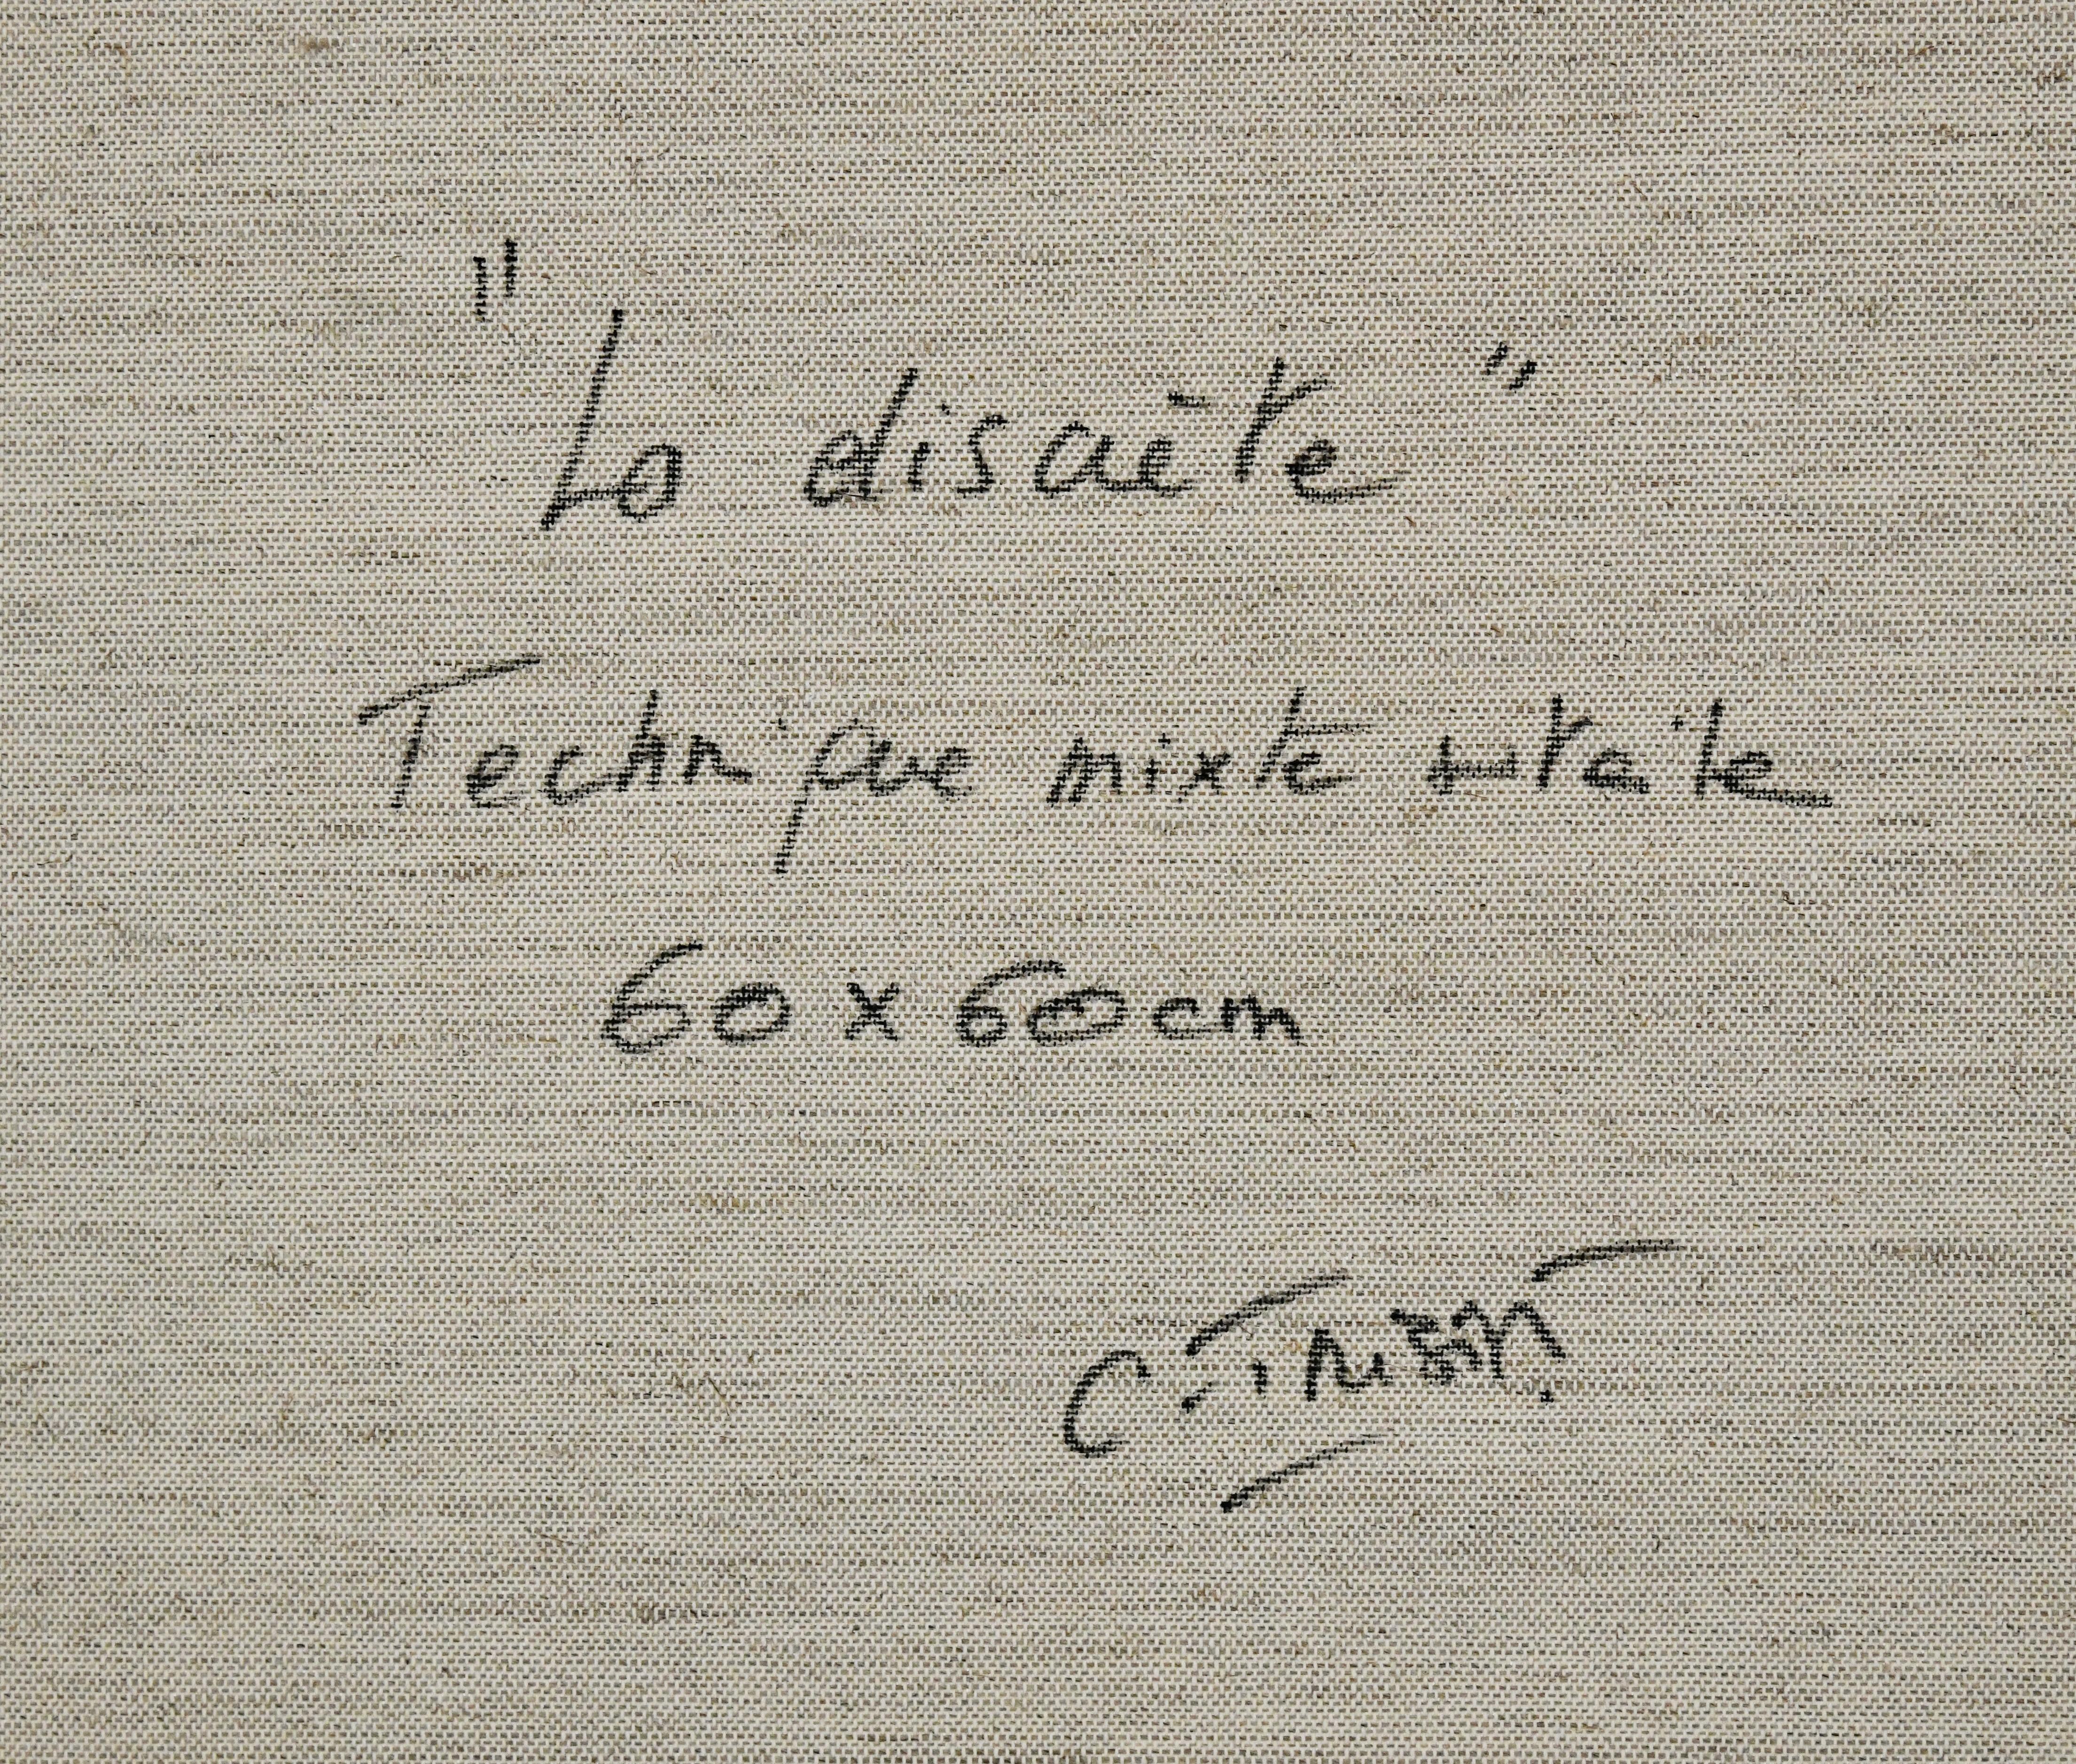 "La discrète"
Technique mixte s/toile
60 x 60 cm